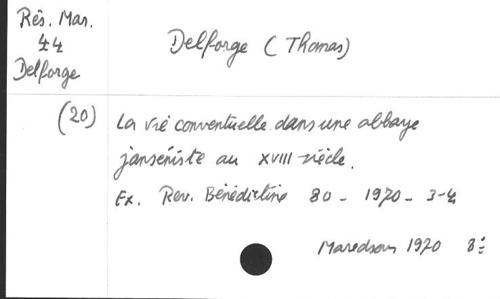 Rés. Mar.
44
Delforge
Delforge (Thomas)
(20)
La vie conventuelle dans une abbaye
janséniste au XVIII siècle.
Ex. Rev. Bénédictine 80 - 1970 - 3-4
Maredsous 1970 8°